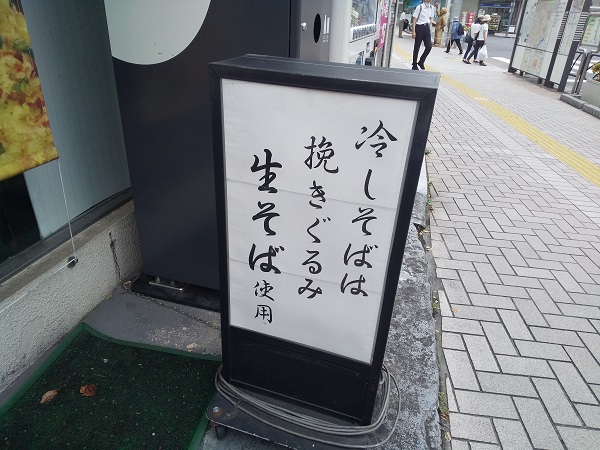 冷しそばは
挽きぐるみ
生そば使用